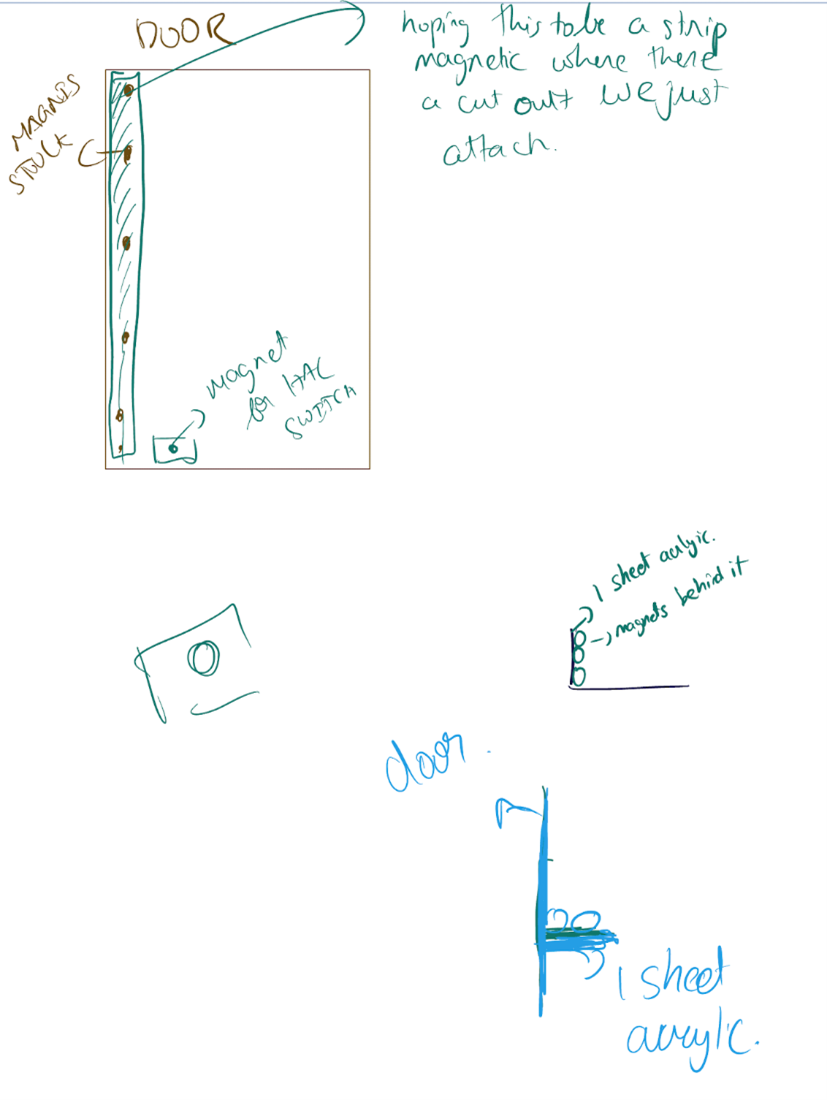 DOOR
hoping this to be a strip
magnetic where there
a cut outt we just
attach.
MAGNIS
STUCK
magnet
for HAL
SWITCH
1 sheet acrlyic.
magnets behind it
door.
1 sheet
acrylic.